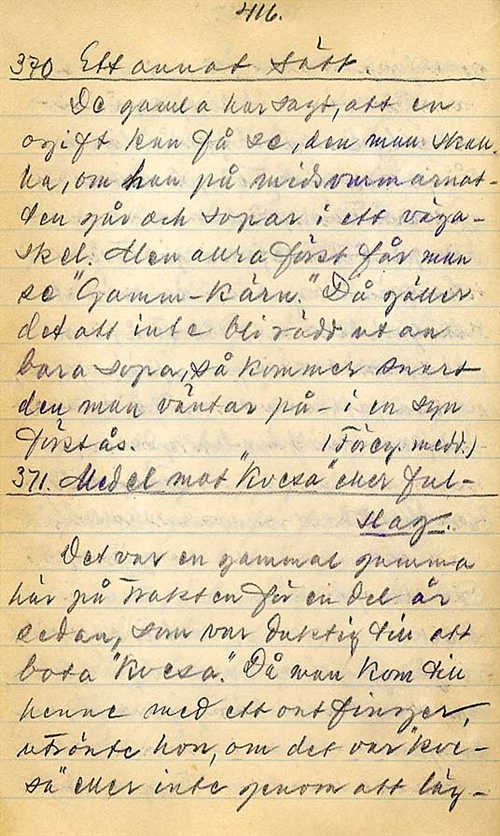 416.
370. Ett annat sätt.
De gamla har sagt, att en
ogift kan få se, den man skall
ha, om han på midsommarnat-
ten går och sopar i ett väga-
skel. Men allra först får man
se "Gamm-Kärn." Då gäller
det att inte bli rädd utan
bara sopa, så kommer snart
den man väntar på - i en syn
förstås. (Föreg. medd.)
371. Medel mot "kvesa" eller ful-
slag.
Det var en gammal gumma
här på trakten för en del år
sedan, som var duktig till att
bota "kvesa". Då man kom till
henne med ett ont finger,
utrönte hon, om det var "kve-
sa" eller inte genom att läg-